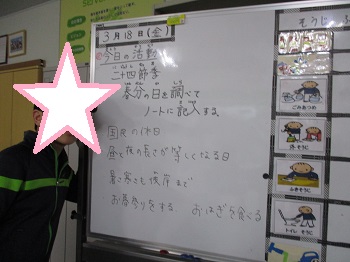 3月18日(金)
今日の活動
二十四節季
春分の日を調べて
ノートに記入する
国民の休日
昼と夜の長さが等しくなる日
暑さ寒さも彼岸まで
お墓参りをする おはぎを食べる
そうじ
ごみあつめ
ふきそうじ
トイレそうじ